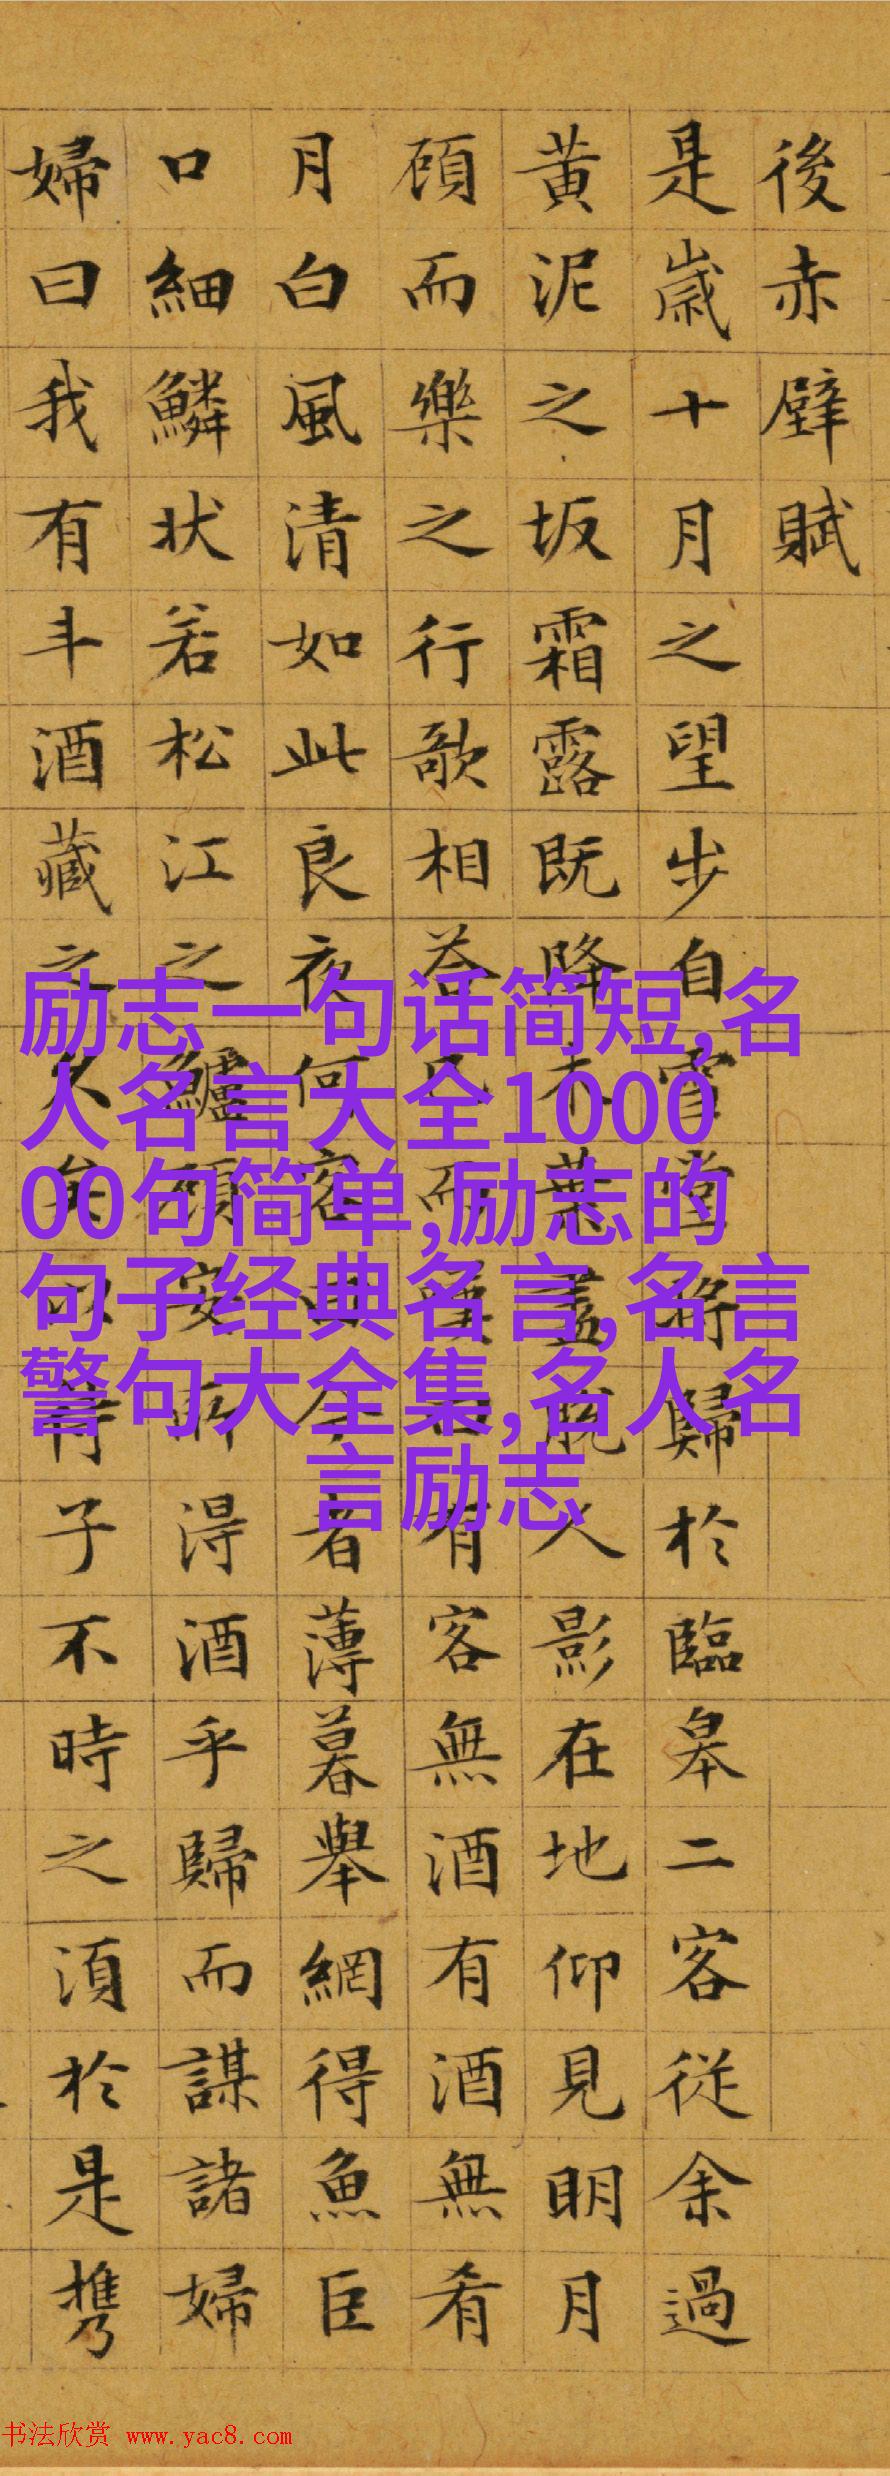 後赤壁賦
是歲十月之望步自雪堂將歸於臨皋二客從余過
黄泥之坂霜露既降木葉盡脫人影在地仰見明月
顧而樂之行歌相答已而嘆曰有客無酒有酒無肴
月白風清如此良夜何客曰今者薄暮舉網得魚巨
口細鱗状若松江之鱸顧安所得酒乎歸而謀諸婦
婦曰我有斗酒藏之久矣以待子不時之須於是携
励志一句话简短,名
人名言大全1000
00句简单,励志的
句子经典名言,名言
警句大全集,名人名
言励志
书法欣赏 www.yac8.com